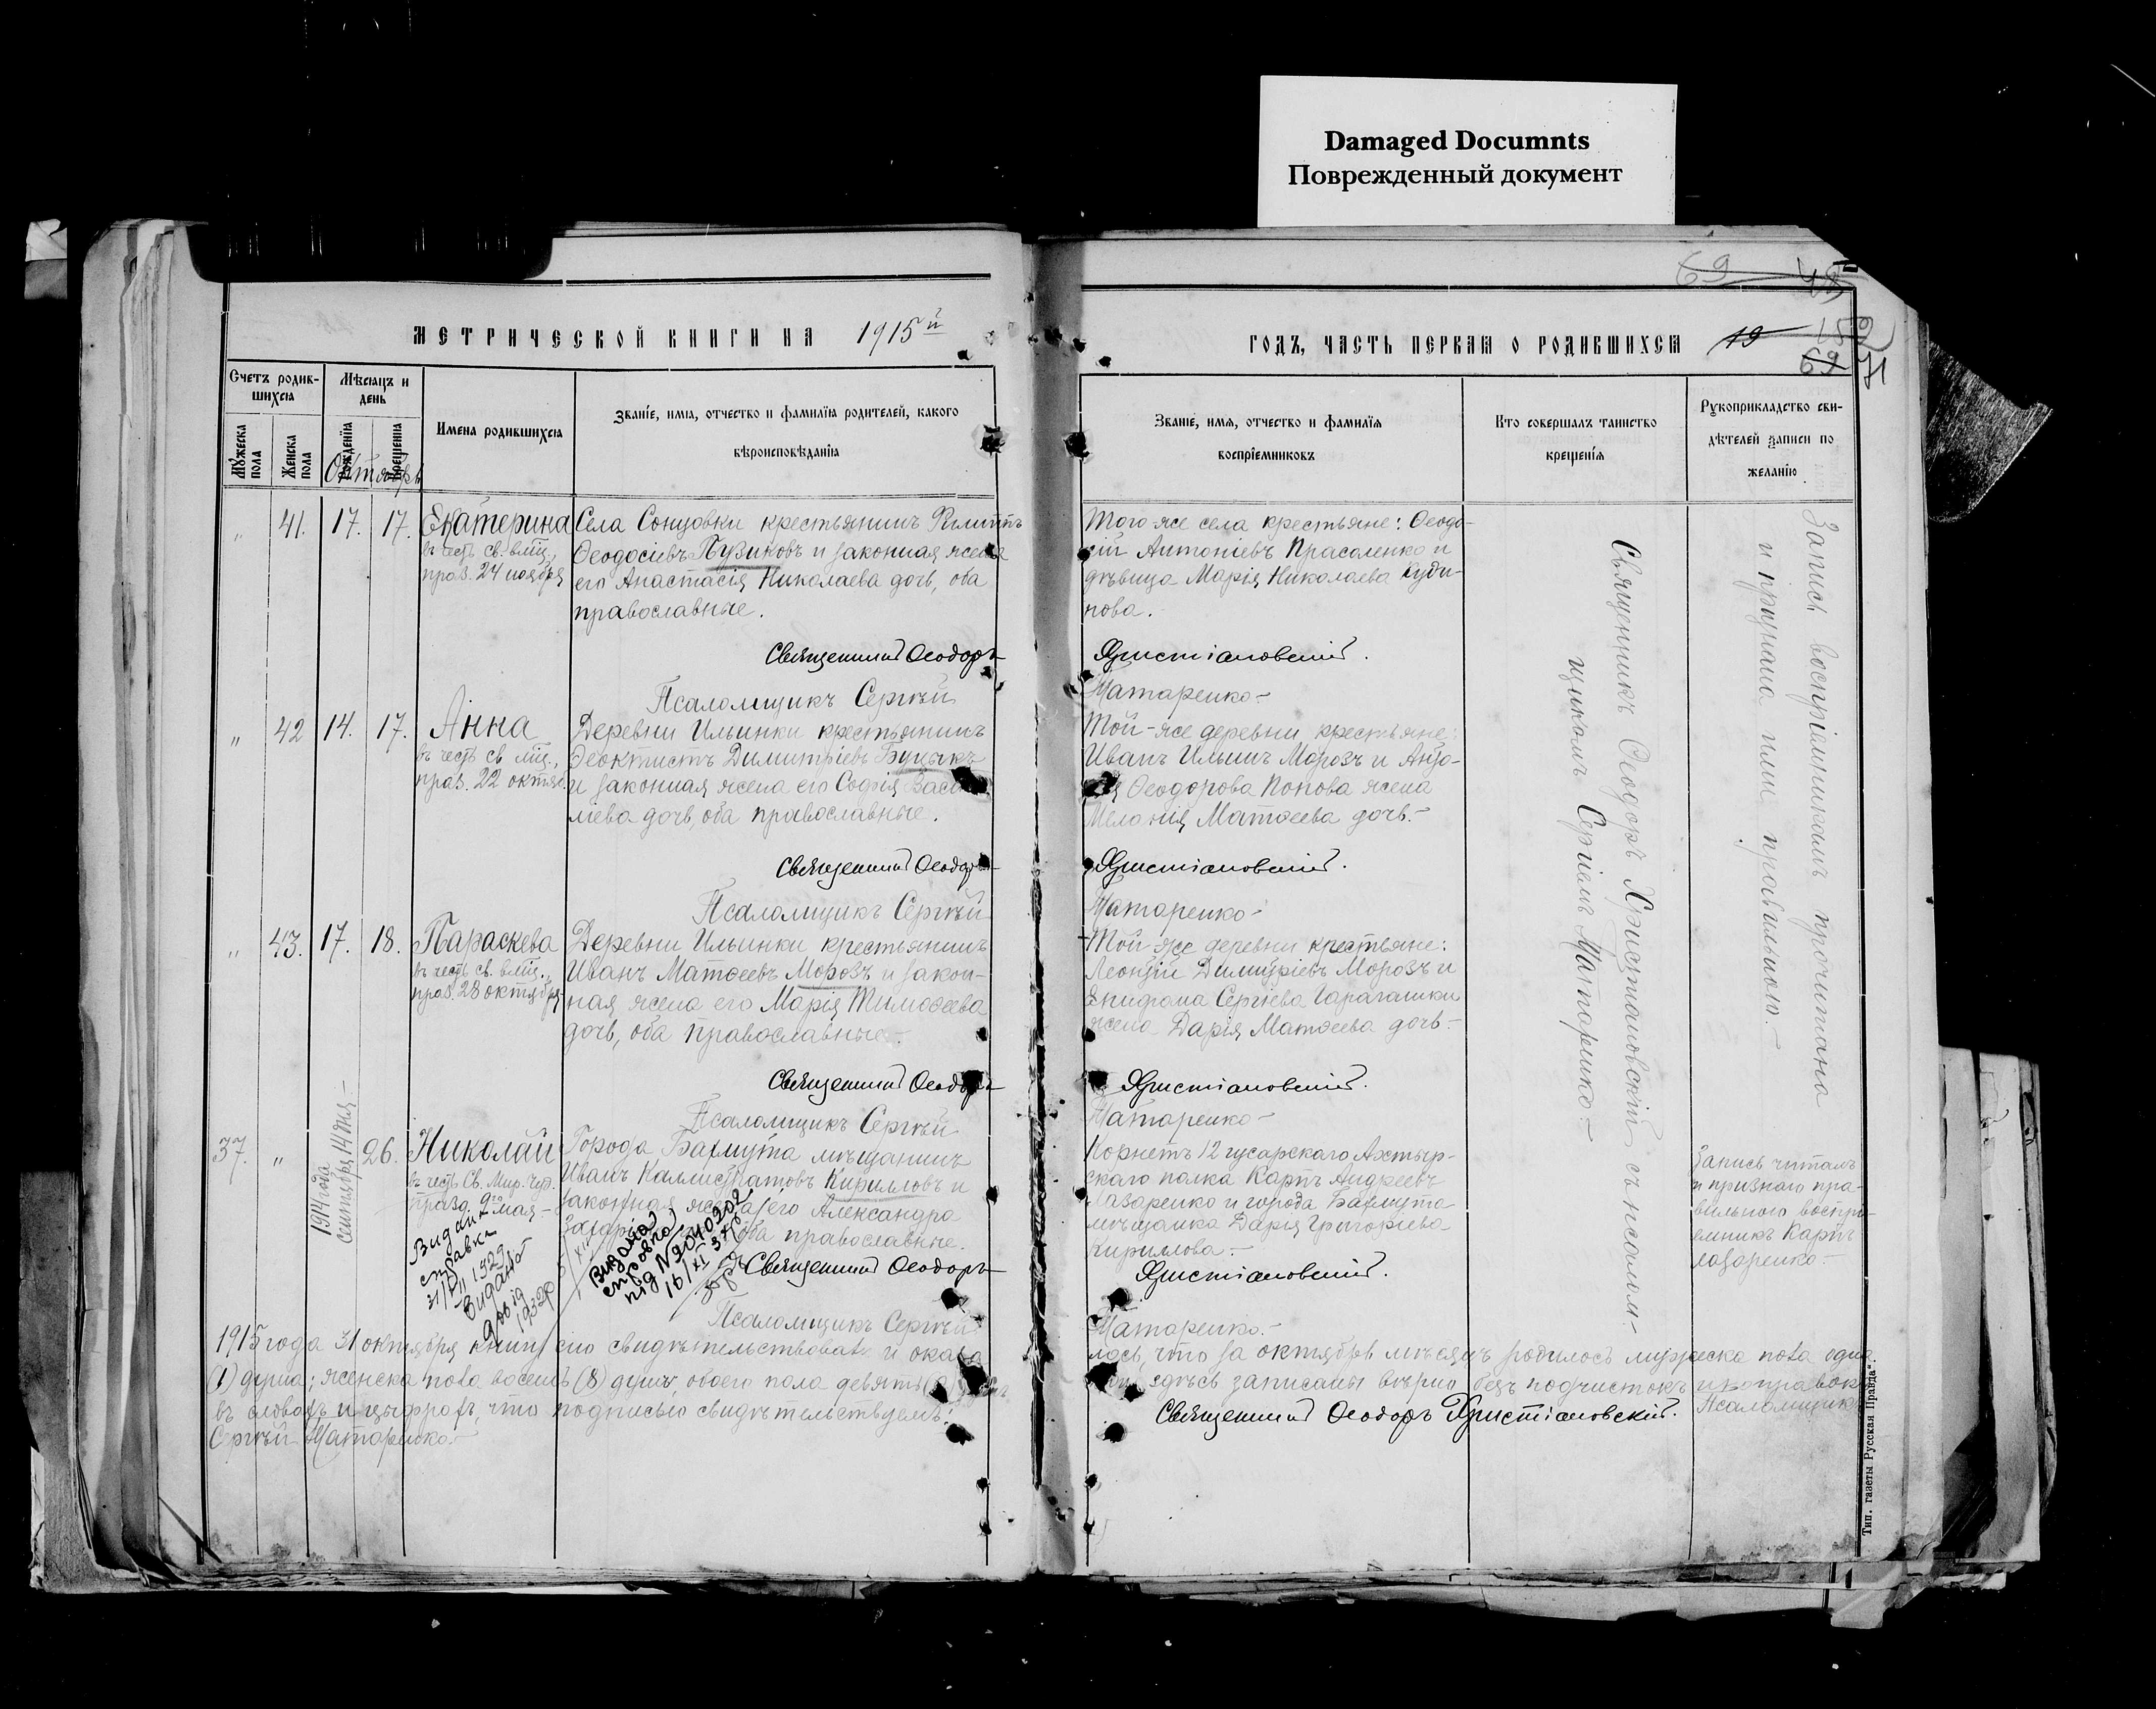 Damaged Documnts
Поврежденный документ
69 48
МЕТРИЧЕСКОЙ КНИГИ НА 1915й
ГОДЪ, ЧАСТЬ ПЕРВАЯ О РОДИВШИХСЯ 19 152
69 71
Счетъ родив-
шихся
Мѣсяцъ и
день
Мужеска
пола
Женска
пола
Рожденія
Крещенія
Октябрь
Имена родившихся
Званіе, имя, отчество и фамилія родителей, какого
вѣроисповѣданія
Званіе, имя, отчество и фамилія
воспріемниковъ
Кто совершалъ таинство
крещенія
Рукоприкладство сви-
дѣтелей записи по
желанію
„ 41. 17. 17. Екатерина
въ честь св. влмц.,
праз. 24 ноября
Села Сонцовки крестьянинъ Филиппъ
Ѳеодосіевъ Пузиковъ и законная жена
его Анастасія Николаева дочь, оба
православные.
Того же села крестьяне: Ѳеодо-
сій Антоніевъ Прасоленко и
дѣвица Марія Николаева Куди-
нова.
Священникъ Ѳеодоръ Христіановскій.
Псаломщикъ Сергѣй Матаренко
„ 42 14. 17. Анна
въ честь св. мц.,
праз. 22 октяб.
Деревни Ильинки крестьянинъ
Ѳеоктистъ Димитріевъ Буцыкъ
и законная жена его Софія Васи-
ліева дочь, оба православные.
Той-же деревни крестьяне:
Иванъ Ильинъ Морозъ и
Ѳеодорова Попова жена
Меланія Матѳеева дочь.
Священникъ Ѳеодоръ Христіановскій.
Псаломщикъ Сергѣй Матаренко
„ 43. 17. 18. Параскева
въ честь св. влмц.,
праз. 28 октября
Деревни Ильинки крестьянинъ
Иванъ Матѳеевъ Морозъ и закон-
ная жена его Марія Тимоѳеева
дочь, оба православные.
Той-же деревни крестьяне:
Леонтій Димитріевъ Морозъ и
Епифана Сергіева Гарагашки
жена Дарія Матѳеева дочь.
Священникъ Ѳеодоръ Христіановскій.
Псаломщикъ Сергѣй Матаренко
37. „ 1914 года
Сентября 14 дня
26. Николай
въ честь Св. Мир. Чуд.
празд. 9го мая.
Города Бахмута мѣщанинъ
Иванъ Каллистратовъ Кирилловъ и
законная жена его Александра
оба православные.
Корнетъ 12 гусарскаго Ахтыр-
скаго полка Карпъ Андреевъ
Лазаренко и города Бахмута
мѣщанка Дарія Григоріева
Кириллова.
Запись читалъ
и призналъ пра-
вильною воспрі-
емникъ Карпъ
Лазаренко.
Священникъ Ѳеодоръ Христіановскій.
Псаломщикъ Сергѣй Матаренко.
Видана
справка
31/VII 1929
Видано
довід
1932р
Видана
справка
під № 2040202
16/XI 37р
Священникъ Ѳеодоръ Христіановскій съ псалом-
щикомъ Сергіемъ Матаренко.
Запись воспріемникамъ прочитана
и признана ими правильною.
1915 года 31 октября книгу сію свидѣтельствовали и оказа-
лось, что за октябрь мѣсяцъ родилось мужеска пола одна
(1) душа; женска пола восемь (8) душъ, обоего пола девять (9) душъ,
здѣсь записаны вѣрно безъ подчистокъ и поправокъ
въ словахъ и цыфрахъ, что подписью свидѣтельствуемъ:
Священникъ Ѳеодоръ Христіановскій. Псаломщикъ
Сергѣй Матаренко.
Тип. газеты „Русская Правда“.